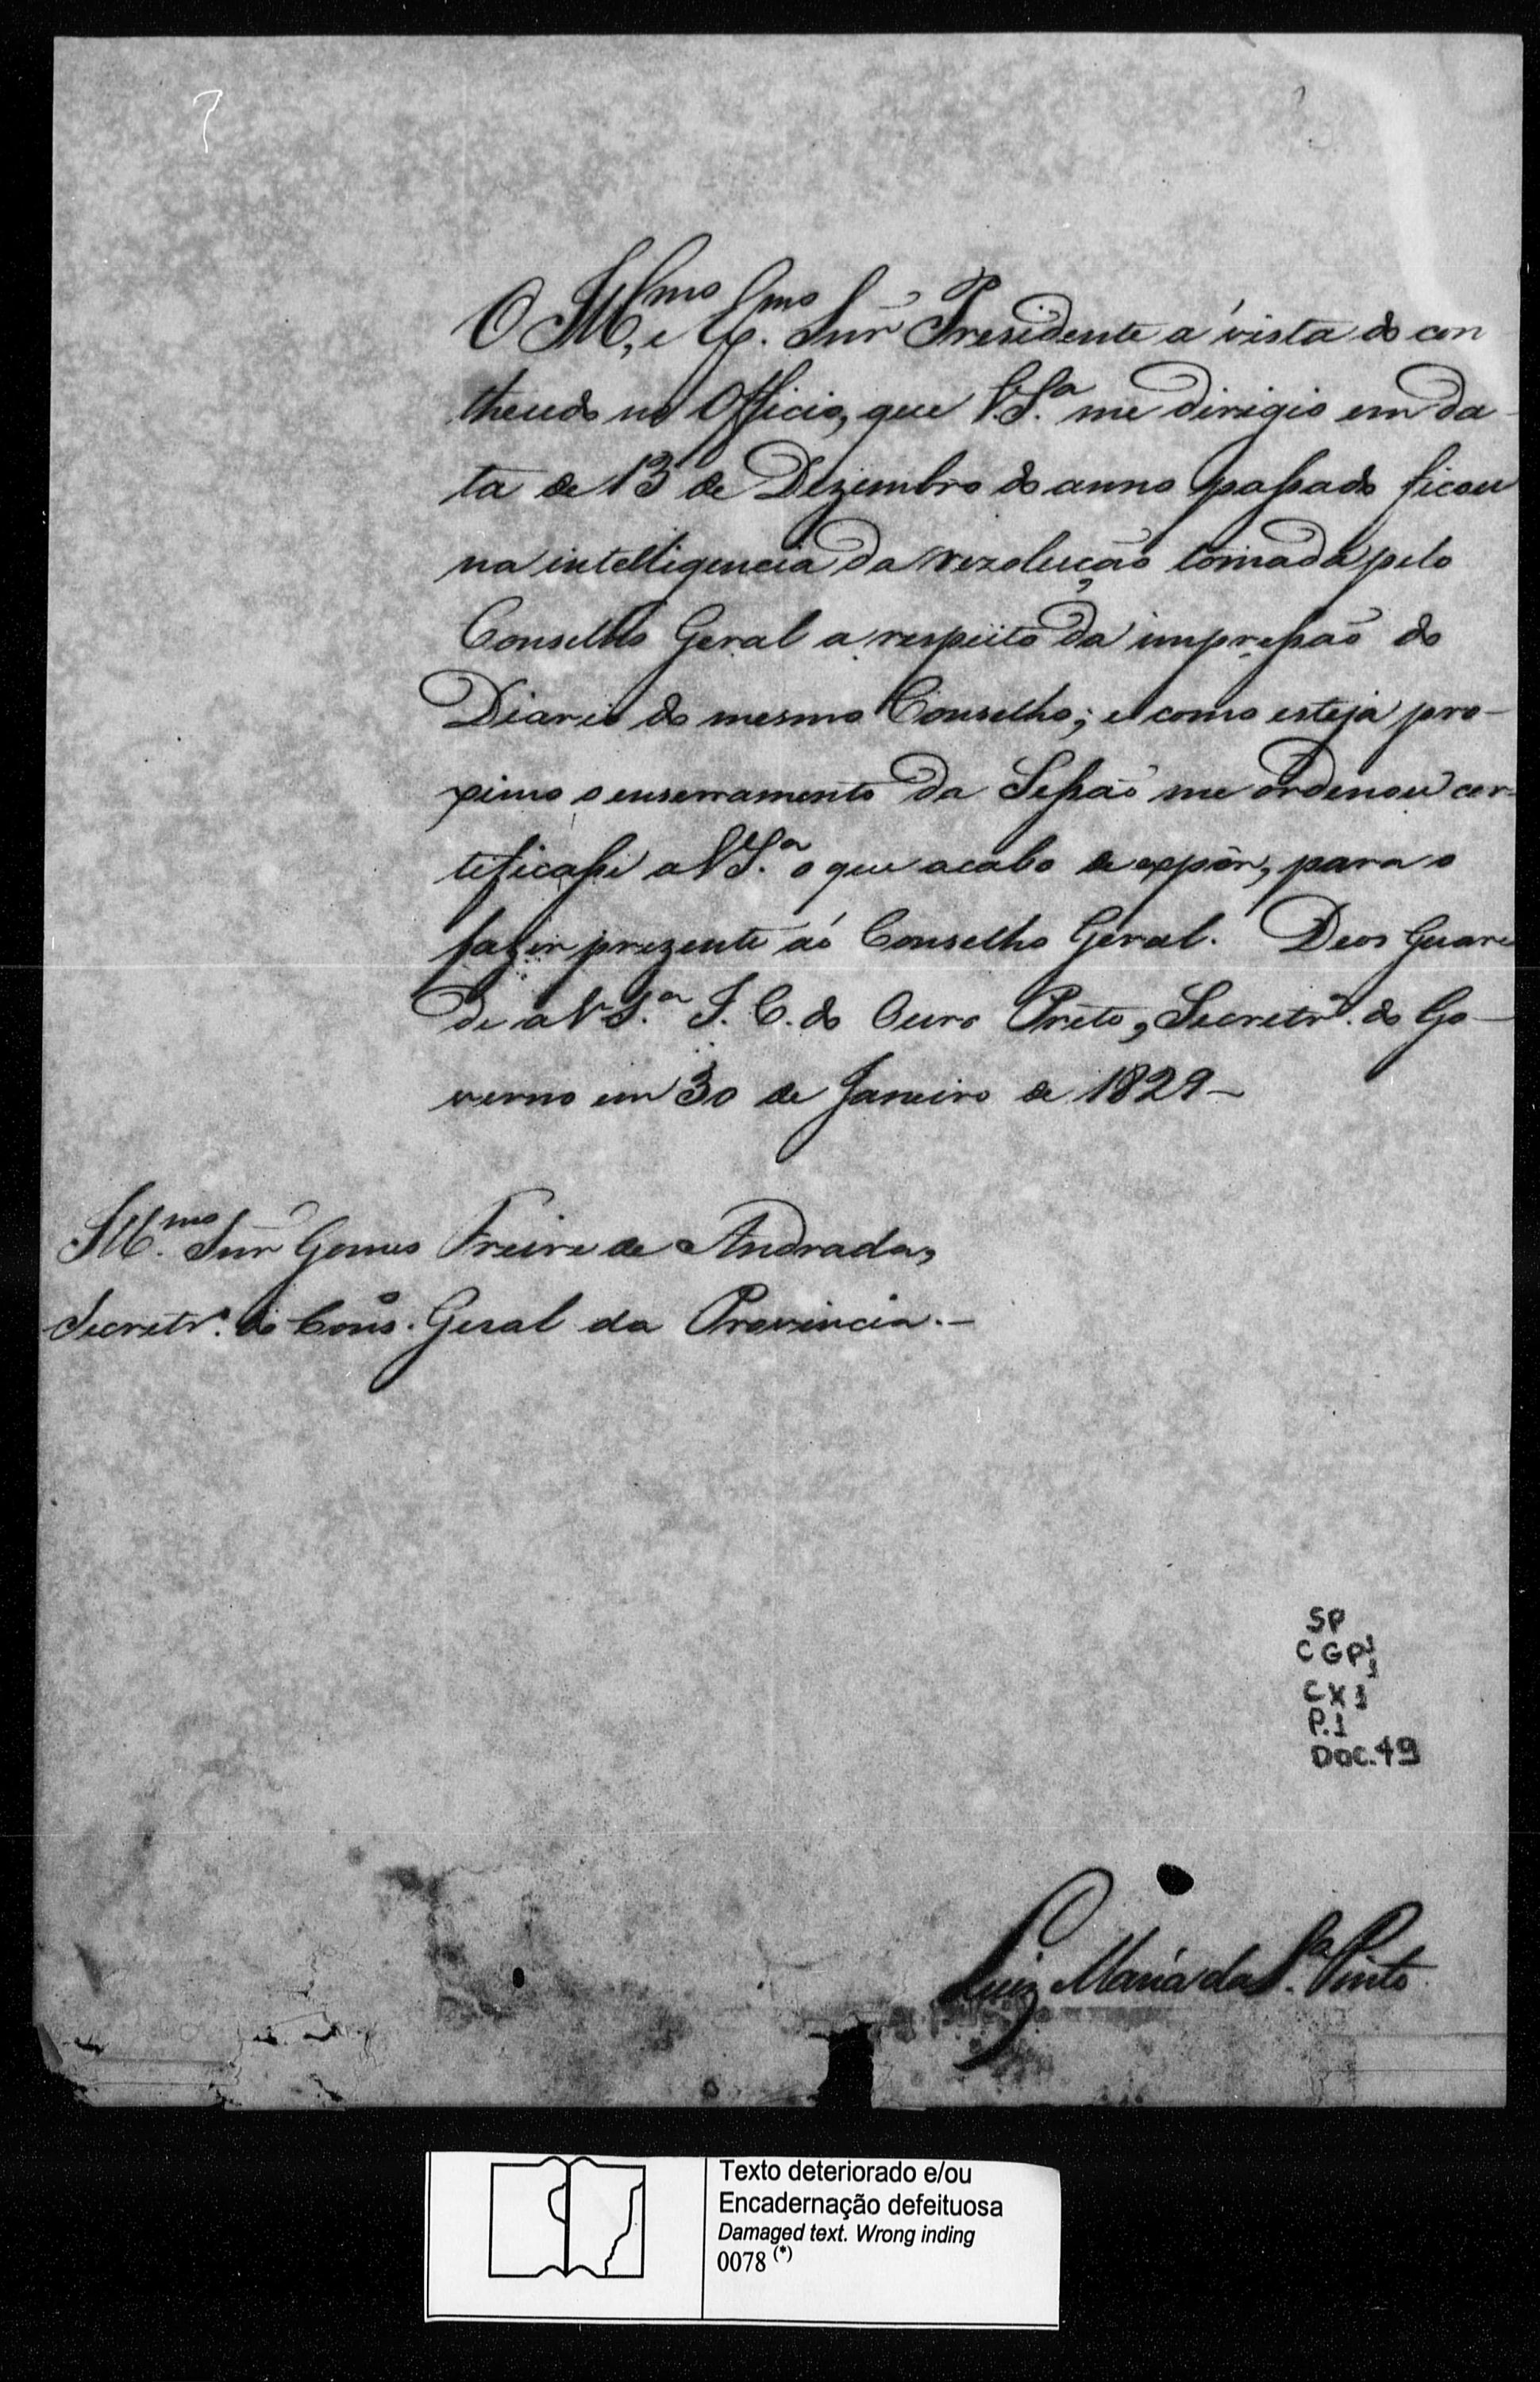 O Ill.mo, e Ex.mo Snr Presidente a' vista do con
theudo no Officio, que V.S.a me dirigio em da-
ta de 13 de Dezembro do anno passado ficou
na intelligencia da rezolução tomada pelo
Conselho Geral a respeito da impressão do
Diario do mesmo Conselho; e como esteja pro-
ximo o enserramento da Sessão me ordenou cer-
tificasse a V.S.a o que acabo de expôr, para o
fazer prezente aó Conselho Geral. Deos Guar-
de a V.S.a I. C. do Ouro Preto, Secretr.a do Go-
verno em 30 de Janeiro de 1829-
Ill.mo Snr Gomes Freire de Andrada,
Secretr.o do Cons.o Geral da Provincia.-
SP
CGP1
CX1
P.1
DOC.49
Luiz Maria da S.a Pinto
Texto deteriorado e/ou
Encadernação defeituosa
Damaged text. Wrong inding
0078 (*)